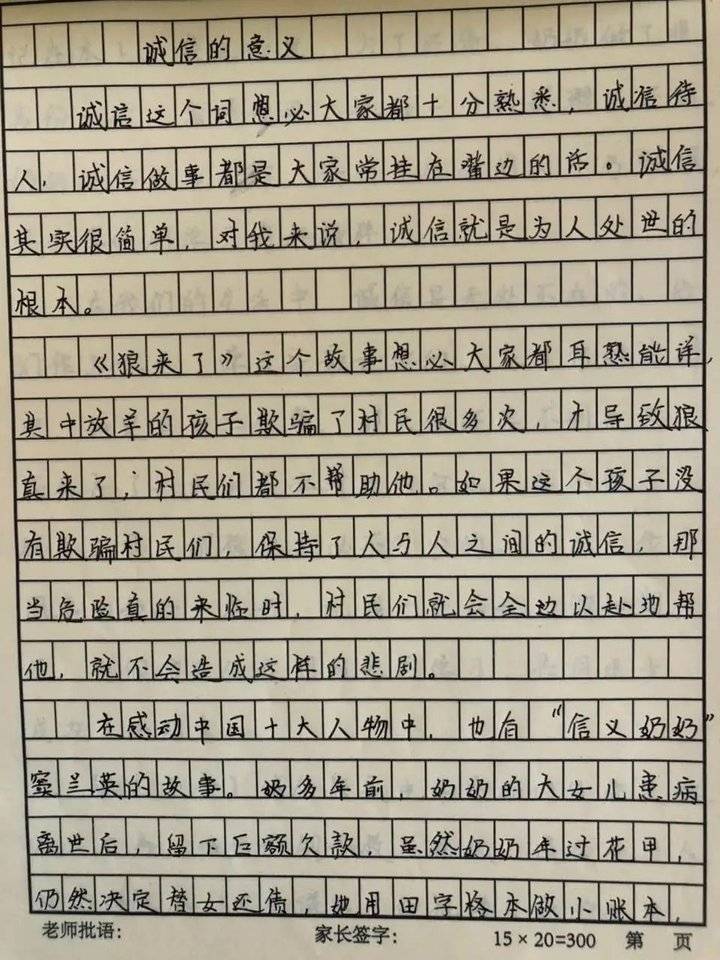 诚信的意义
诚信这个词想必大家都十分熟悉，诚信待
人，诚信做事都是大家常挂在嘴边的话。诚信
其实很简单，对我来说，诚信就是为人处世的
根本。
《狼来了》这个故事想必大家都耳熟能详，
其中放羊的孩子欺骗了村民很多次，才导致狼
真来了，村民们都不帮助他。如果这个孩子没
有欺骗村民们，保持了人与人之间的诚信，那
当危险真的来临时，村民们就会全边以赴地帮
他，就不会造成这样的悲剧。
在感动中国十大人物中，也有“信义奶奶”
窦兰英的故事。奶多年前，奶奶的大女儿患病
离世后，留下巨额欠款，虽然奶奶年过花甲，
仍然决定替女还债，她用田字格本做小账本，
老师批语： 家长签字： 15×20=300 第 页